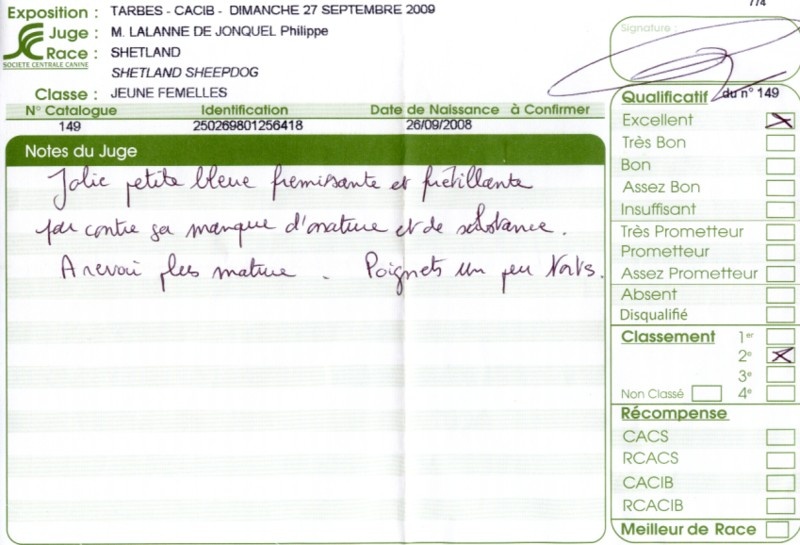 774
Exposition : TARBES - CACIB - DIMANCHE 27 SEPTEMBRE 2009
Juge : M. LALANNE DE JONQUEL Philippe
Race : SHETLAND
SHETLAND SHEEPDOG
SOCIETE CENTRALE CANINE
Classe : JEUNE FEMELLES
N° Catalogue Identification Date de Naissance à Confirmer
149 250269801256418 26/09/2008
Notes du Juge
Jolie petite bleue fremissante et frétillante
par contre ça manque d'ossature et de substance.
A revoir plus mature . Poignets un peu forts.
Signature :
Qualificatif du n° 149
Excellent
Très Bon
Bon
Assez Bon
Insuffisant
Très Prometteur
Prometteur
Assez Prometteur
Absent
Disqualifié
Classement 1er
2e
3e
Non Classé 4e
Récompense
CACS
RCACS
CACIB
RCACIB
Meilleur de Race